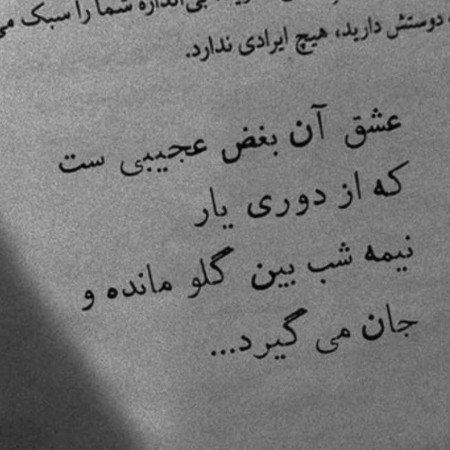 اندازه شما را سبک می
دوستش دارید، هیچ ایرادی ندارد.
عشق آن بغض عجیبی ست
که از دوری یار
نیمه شب بین گلو مانده و
جان می گیرد...